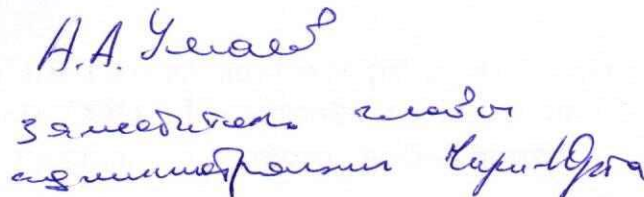 Н.А. Умаев
заместитель главы
администрации Чири-Юрта